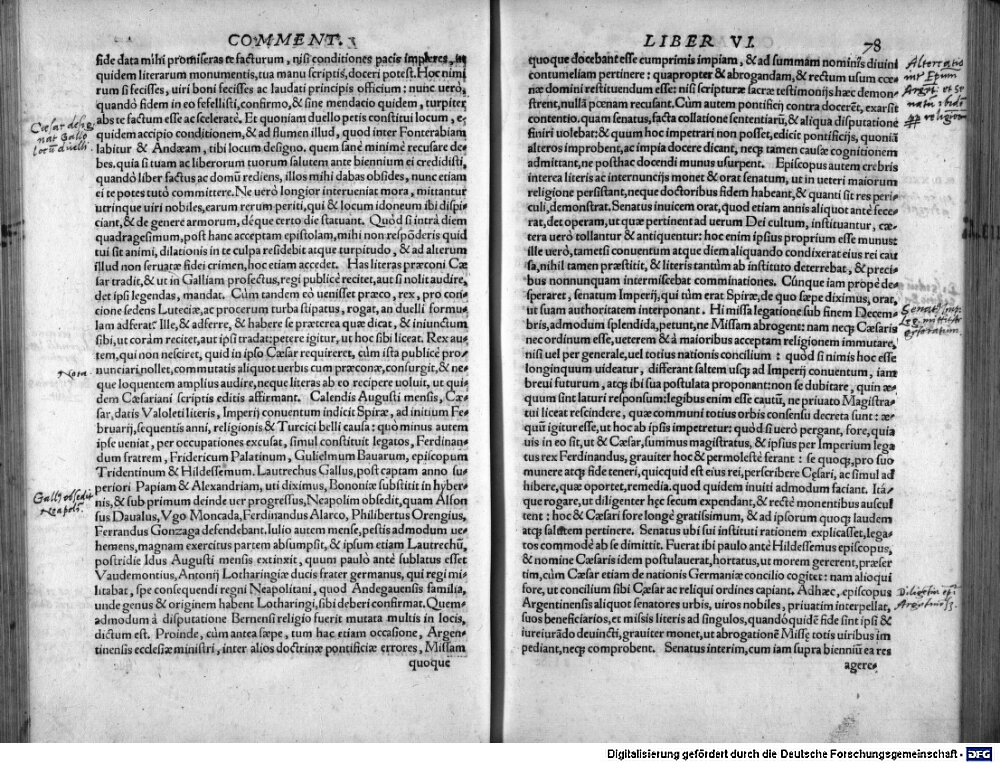 COMMENT.
fide data mihi promiseras te facturum, nisi conditiones pacis impleres, id
quidem literarum monumentis, tua manu scriptis, doceri potest. Hoc nimi
rum si fecisses, uiri boni fecisses ac laudati principis officium: nunc uerò,
quandò fidem in eo fefellisti, confirmo, & sine mendacio quidem, turpiter
abs te factum esse ac sceleratè. Et quoniam duello petis constitui locum, e⸗
quidem accipio conditionem, & ad flumen illud, quod inter Fonterabiam
labitur & Andæam, tibi locum designo. quem sanè minimè recusare de⸗
bes, quia si tuam ac liberorum tuorum salutem ante biennium ei credidisti,
quandò liber factus ac domũ rediens, illos mihi dabas obsides, nunc etiam
ei te potes tutò committere. Ne uerò longior interueniat mora, mittantur
utrinque uiri nobiles, earum rerum periti, qui & locum idoneum ibi dispi⸗
ciant, & de genere armorum, déque certo die statuant. Quòd si intrà diem
quadragesimum, post hanc acceptam epistolam, mihi non respõderis quid
tui sit animi, dilationis in te culpa residebit atque turpitudo, & ad alterum
illud non seruatæ fidei crimen, hoc etiam accedet. Has literas præconi Cæ
sar tradit, & ut in Galliam profectus, regi publicè recitet, aut si nolit audire,
det ipsi legendas, mandat. Cùm tandem eò uenisset præco, rex, pro con⸗
cione sedens Luteciæ, ac procerum turba stipatus, rogat, an duelli formu⸗
lam adferat? Ille, & adferre, & habere se præterea quæ dicat, & iniunctum
sibi, ut coràm recitet, aut ipsi tradat: petere igitur, ut hoc sibi liceat. Rex au⸗
tem, qui non nesciret, quid in ipso Cæsar requireret, cùm ista publicè pro⸗
nunciari nollet, commutatis aliquot uerbis cum præcone, consurgit, & ne⸗
que loquentem amplius audire, neque literas ab eo recipere uoluit, ut qui⸗
dem Cæsariani scriptis editis affirmant. Calendis Augusti mensis, Cæ⸗
sar, datis Valoleti literis, Imperij conuentum indicit Spiræ, ad initium Fe⸗
bruarij, sequentis anni, religionis & Turcici belli causa: quò minus autem
ipse ueniat, per occupationes excusat, simul constituit legatos, Ferdinan⸗
dum fratrem, Fridericum Palatinum, Gulielmum Bauarum, episcopum
Tridentinum & Hildessemum. Lautrechus Gallus, post captam anno su⸗
periori Papiam & Alexandriam, uti diximus, Bononiæ substitit in hyber⸗
nis, & sub primum deinde uer progressus, Neapolim obsedit, quam Alfon
sus Daualus, Vgo Moncada, Ferdinandus Alarco, Philibertus Orengius,
Ferrandus Gonzaga defendebant. Iulio autem mense, pestis admodum ue⸗
hemens, magnam exercitus partem absumpsit, & ipsum etiam Lautrechũ,
postridie Idus Augusti mensis extinxit, quum paulò antè sublatus esset
Vaudemontius, Antonij Lotharingiæ ducis frater germanus, qui regi mi⸗
litabat, spe consequendi regni Neapolitani, quod Andegauensis familia,
unde genus & originem habent Lotharingi, sibi deberi confirmat. Quem⸗
admodum à disputatione Bernensi religio fuerit mutata multis in locis,
dictum est. Proinde, cùm antea sæpe, tum hac etiam occasione, Argen⸗
tinensis ecclesiæ ministri, inter alios doctrinæ pontificiæ errores, Missam
quoque
Cæsar desig⸗
nat Gallo
locũ duelli.
Nota.
Gallus obsedit
Neapolĩ.
LIBER VI. 78
quoque docebant esse cumprimis impiam, & ad summam nominis diuini
contumeliam pertinere: quapropter & abrogandam, & rectum usum cœ⸗
næ domini restituendum esse: nisi scripturæ sacræ testimonijs hæc demon⸗
strent, nullã pœnam recusant. Cùm autem pontificij contra docerẽt, exarsit
contentio. quam senatus, facta collatione sententiarũ, & aliqua disputatione
finiri uolebat: & quum hoc impetrari non posset, edicit pontificijs, quoniã
alteros improbent, ac impia docere dicant, neqꝫ tamen causæ cognitionem
admittant, ne posthac docendi munus usurpent. Episcopus autem crebris
interea literis ac internuncijs monet & orat senatum, ut in ueteri maiorum
religione persistant, neque doctoribus fidem habeant, & quanti sit res peri⸗
culi, demonstrat. Senatus inuicem orat, quod etiam annis aliquot antè fece⸗
rat, det operam, ut quæ pertinent ad uerum Dei cultum, instituantur, cæ⸗
tera uerò tollantur & antiquentur: hoc enim ipsius proprium esse munus:
ille uerò, tametsi conuentum atque diem aliquando condixerat eius rei cau
sa, nihil tamen præstitit, & literis tantùm ab instituto deterrebat, & preci⸗
bus nonnunquam intermiscebat comminationes. Cúnque iam propè de⸗
speraret, senatum Imperij, qui tùm erat Spiræ, de quo sæpe diximus, orat,
ut suam authoritatem interponant. Hi missa legatione sub finem Decem⸗
bris, admodum splendida, petunt, ne Missam abrogent: nam neqꝫ Cæsaris
nec ordinum esse, ueterem & à maioribus acceptam religionem immutare,
nisi uel per generale, uel totius nationis concilium: quòd si nimis hoc esse
longinquum uideatur, differant saltem usqꝫ ad Imperij conuentum, iam
breui futurum, atqꝫ ibi sua postulata proponant: non se dubitare, quin æ⸗
quum sint laturi responsum: legibus enim esse cautũ, ne priuato Magistra⸗
tui liceat rescindere, quæ communi totius orbis consensu decreta sunt: æ⸗
quũ igitur esse, ut hoc ab ipsis impetretur: quòd si uerò pergant, fore, quia
uis in eo sit, ut & Cæsar, summus magistratus, & ipsius per Imperium lega
tus rex Ferdinandus, grauiter hoc & permolestè ferant: se quoqꝫ, pro suo
munere atqꝫ fide teneri, quicquid est eius rei, perscribere Cęsari, ac simul ad
hibere, quæ oportet, remedia. quod quidem inuiti admodum faciant. Itá⸗
que rogare, ut diligenter hęc secum expendant, & rectè monentibus auscul
tent: hoc & Cæsari fore longè gratissimum, & ad ipsorum quoqꝫ laudem
atqꝫ salutem pertinere. Senatus ubi sui instituti rationem explicasset, lega⸗
tos commodè ab se dimittit. Fuerat ibi paulò antè Hildessemus episcopus,
& nomine Cæsaris idem postulauerat, hortatus, ut morem gererent, præser
tim, cùm Cæsar etiam de nationis Germaniæ concilio cogitet: nam alioqui
fore, ut concilium sibi Cæsar ac reliqui ordines capiant. Adhæc, episcopus
Argentinensis aliquot senatores urbis, uiros nobiles, priuatim interpellat,
suos beneficiarios, et missis literis ad singulos, quandòquidẽ fide sint ipsi &
iureiurãdo deuincti, grauiter monet, ut abrogationẽ Missę totis uiribus im
pediant, neqꝫ comprobent. Senatus interim, cum iam supra bienniũ ea res
agere⸗
Altercatio
int Epum
Argẽt. et se
natũ ibidẽ
religionem
Senatus Imp.
Leg. mittit
Diligẽtia epĩ
Argẽtineñ.
Digitalisierung gefördert durch die Deutsche Forschungsgemeinschaft - DFG